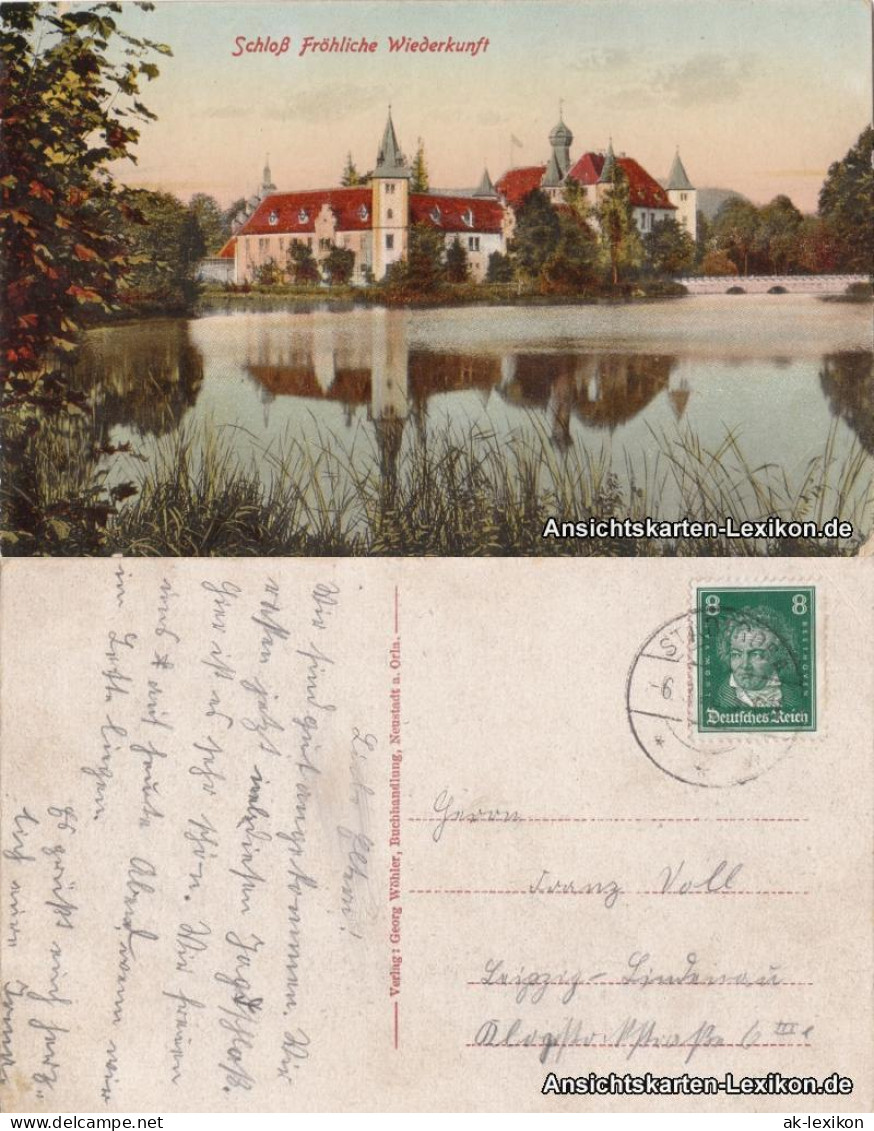 Schloß Fröhliche Wiederkunft
Ansichtskarten-Lexikon.de
Liebe Eltern!
Wir sind gut angekommen. Wir
rasten jetzt in diesem Jagdschloß.
Hier ist es sehr schön. Wir freuen
uns auf heute Abend wenn wir
im Bette liegen
Es grüßt euch herz-
lich eure
Verlag: Georg Wöhler, Buchhandlung, Neustadt a. Orla.
8 8
LUDW. VAN BEETHOVEN
Deutsches Reich
6
Herrn
Franz Voll
Leipzig-Lindenau
Klopstockstraße 6 III
Ansichtskarten-Lexikon.de
ak-lexikon